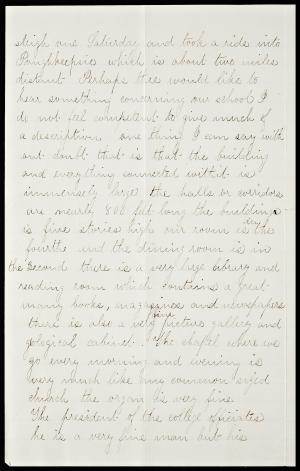 sleigh one Saturday and took a ride into
Poughkeepsie which is about two miles
distant Perhaps thee would like to
hear something concerning our school I
do not feel competent to give much of
a description one thing I can say with
out doubt that is that the building
and everything connected with it is
immensely large the halls or corridors
are nearly 800 feet long the buildings
is five stories high our room is the
fourth and the dining room is in
the second there is a very large library and
reading room which contains a great
many books, magazines and newspapers
there is also a very fine picture gallery and
gological cabinet. The chapel where we
go every morning and evening is
very much like any common sized
church the organ is very fine
The president of the college oficiates
he is a very fine man but his